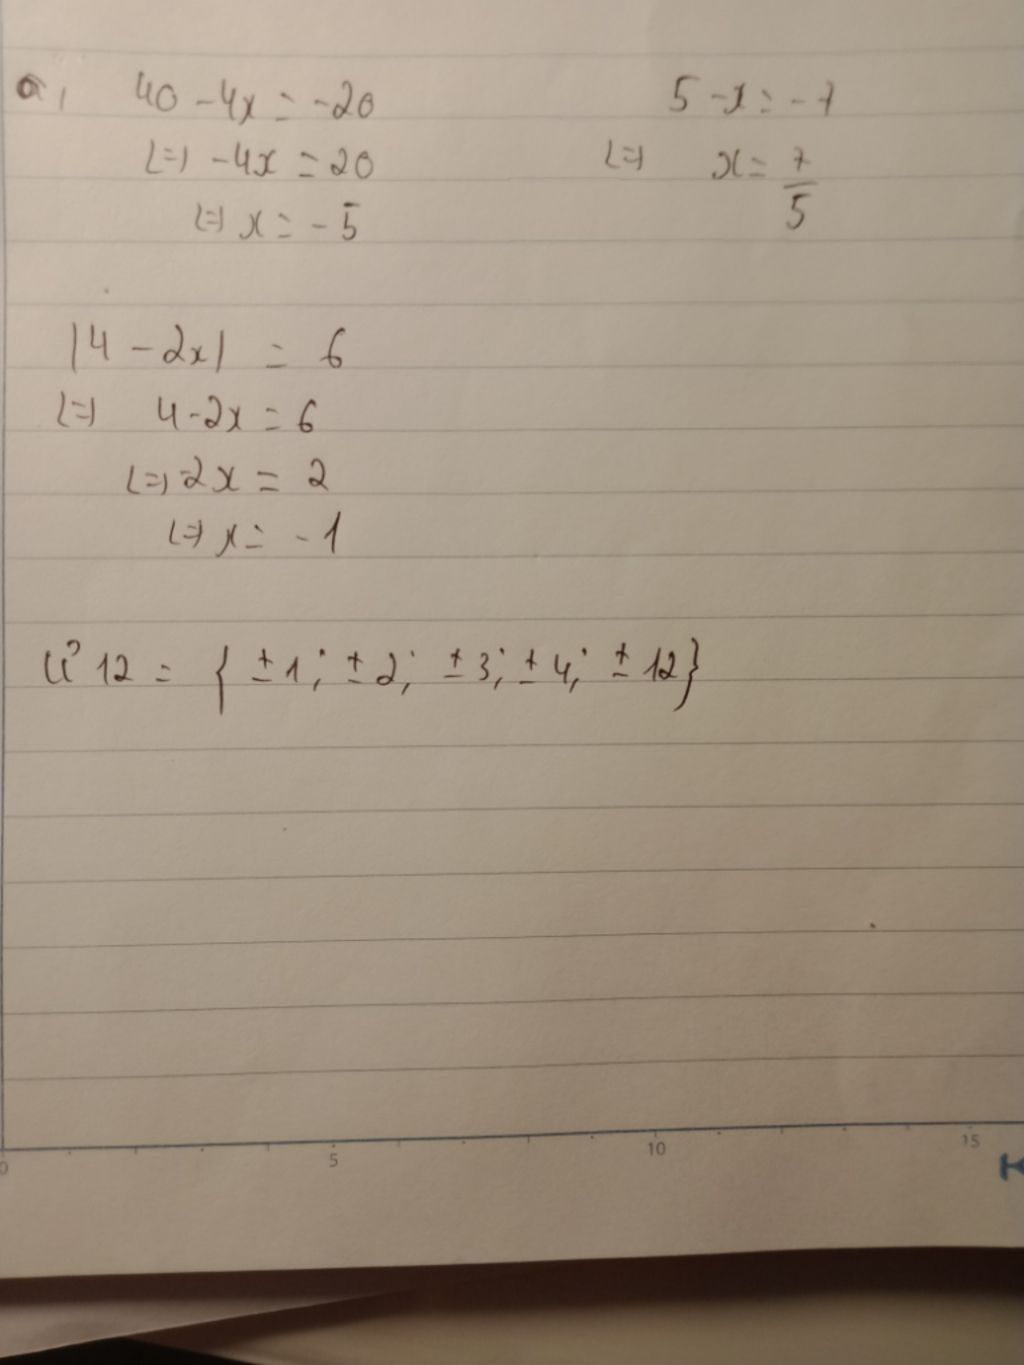 a, 40 - 4x = -20
<=> -4x = 20
<=> x = -5
5 - x = -7
<=> x = 7/5
|4 - 2x| = 6
<=> 4 - 2x = 6
<=> -2x = 2
<=> x = -1
Ư 12 = { ±1; ±2; ±3; ±4; ±12}
0 5 10 15
K